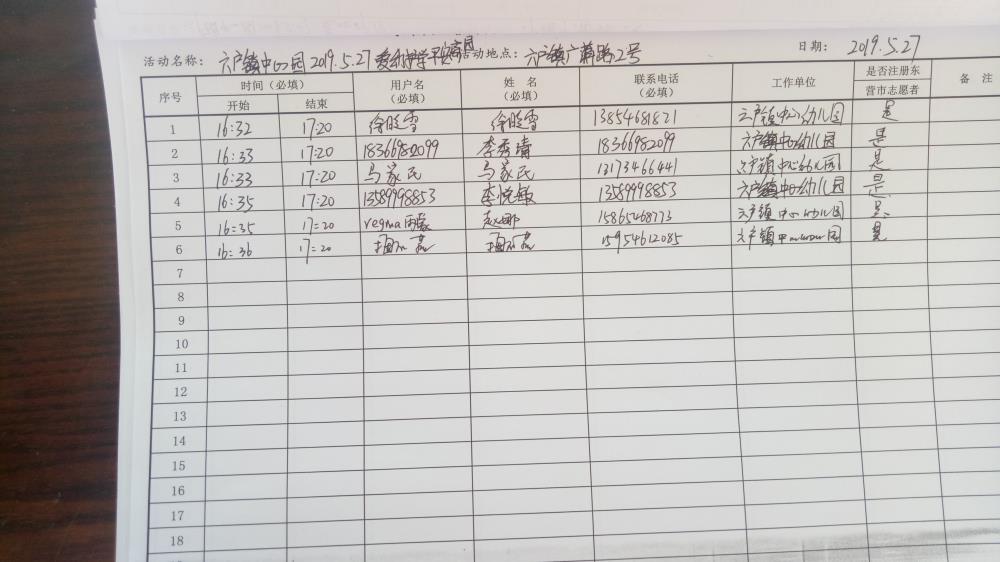 活动名称： 六户镇中心园 2019.5.27 活动地点： 六户镇广蒲路2号 日期： 2019.5.27
序号 时间（必填） 用户名（必填） 姓名（必填） 联系电话（必填） 工作单位 是否注册东营市志愿者 备注
开始 结束
1 16:32 17:20 徐晓雪 徐晓雪 13854681821 六户镇中心幼儿园 是
2 16:33 17:20 18366982099 李秀清 18366982099 六户镇中心幼儿园 是
3 16:33 17:20 马家民 马家民 13173466441 六户镇中心幼儿园 是
4 16:35 17:20 13589998853 李悦敏 13589998853 六户镇中心幼儿园 是
5 16:35 17:20 赵娜 六户镇中心幼儿园 是
6 16:36 17:20 15954612085 六户镇中心幼儿园 是
7
8
9
10
11
12
13
14
15
16
17
18